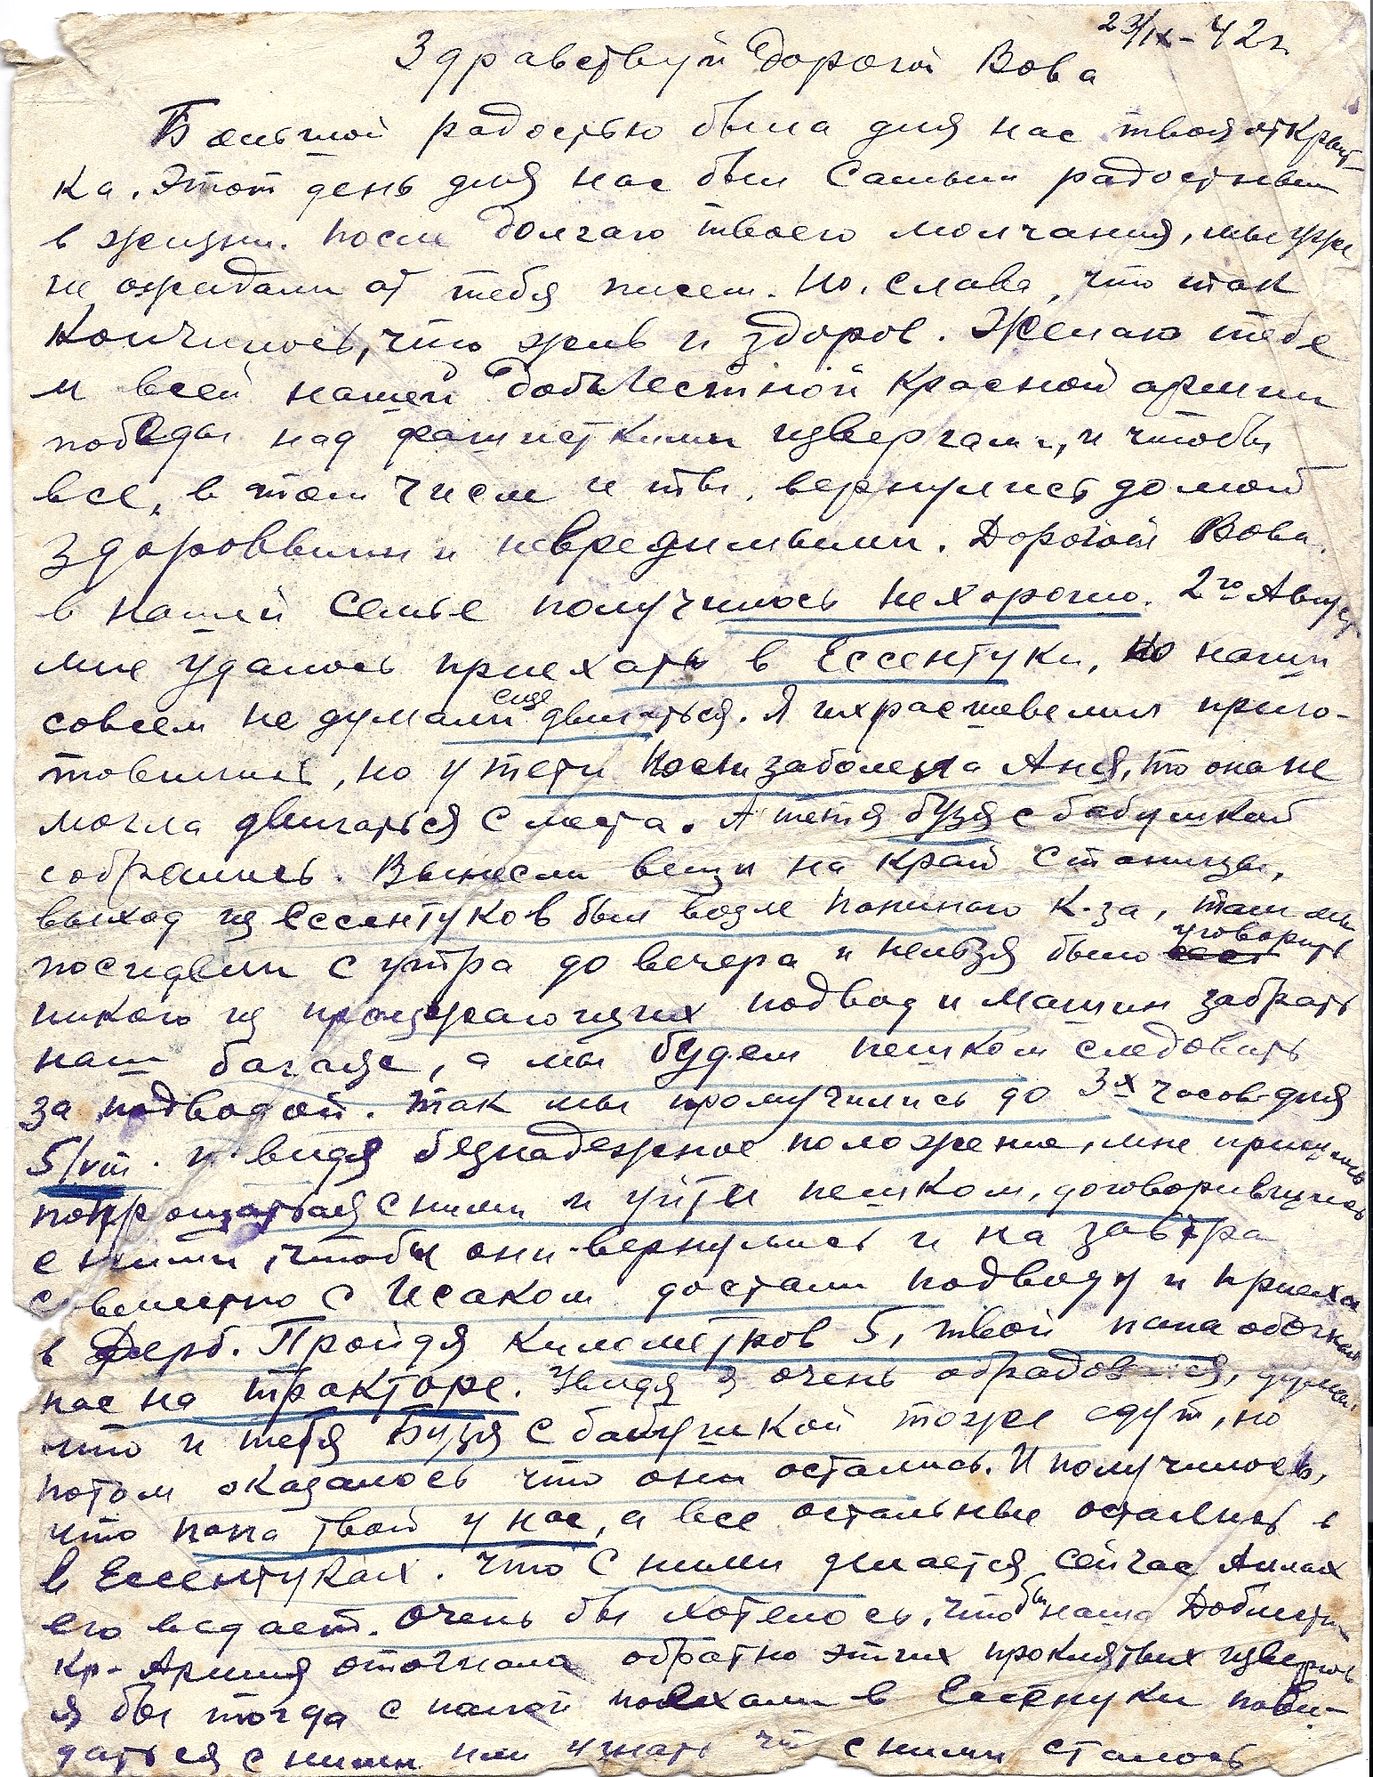 23/IX-42г.
Здравствуй дорогой Вова
Большой радостью была для нас твоя открыт-
ка. Этот день для нас был самым радостным
в жизни. После долгаго твоего молчания, мы уже
не ожидали от тебя писем. Но, слава, что так
кончилось, что жив и здоров. Желаю тебе
и всей нашей доблестной красной армии
победы над фашисткими извергами, и чтобы
все, в том числе и ты, вернулись домой
здоровыми и невредимыми. Дорогой Вова.
в нашей семье получилось нехорошо. 2го Август
мне удалось приехать в Ессентуки, но наши
совсем не думали еще двигаться. Я их расшевелил приго-
товились, но у тети заболела Аня, то она не
могла двигаться с места. А тетя Бузя с бабушкой
собрались. Вынесли вещи на край станицы,
выход из Ессентуков был возле папиного к-за, там мы
посидели с утра до вечера и нельзя было уговорить
никого из проезжающих подвод и машин забрать
наш багаж, а мы будем пешком следовать
за подводой. Так мы промучились до 3х часов дня
5/VIII. и видя безнадежное положение, мне пришлось
попрощаться с ними и уйти пешком, договорившись
с ними, чтобы они вернулись и на завтра
совместно с Исаком достали подводу и приеха
в Дерб. Пройдя километров 5, твой папа обогнал
нас на тракторе. Увидя я очень обрадовался, думал,
что и тетя Бузя с бабушкой тоже едут, но
потом оказалось что они остались. И получилось,
что папа твой у нас, а все остальные остались в
в Ессентуках. Что с ними делается сейчас Аллах
его ведает. Очень бы хотелось, что бы наша Доблестн
кр-Армия отогнала обратно этих проклятых извергов
я бы тогда с папой поехали в Ессенуки пови-
даться с ними или узнать что с ними сталось